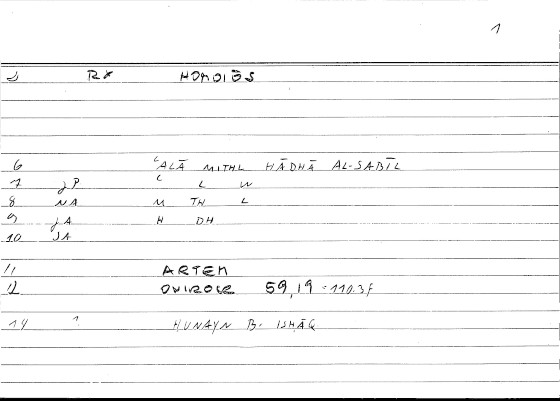 1
RX HOMOIŌS
6 ʿALĀ MITHL HĀDHĀ AL-SABĪL
7 JP ʿ L W
8 NA M TH L
9 JA H DH
10 JA
11 ARTEM
12 ONIROCR 59,19 = 110.3f
14 1 HUNAYN B. ISHĀQ